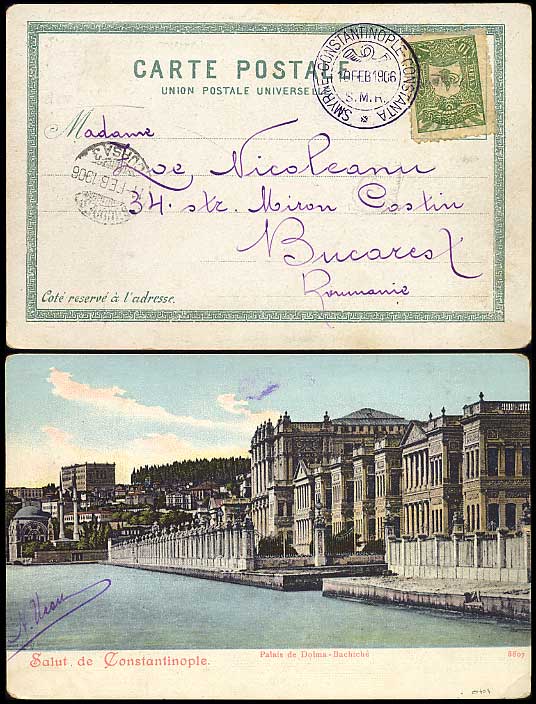 CARTE POSTALE
UNION POSTALE UNIVERSELLE
SMYRNE-CONSTANTINOPLE-CONSTANTA
10 FEB 1906
S.M.R.
10
Madame
Zoe Nicoleanu
34. str. Miron Costin
Bucarest
Roumanie
FEB 1906
Coté reservé à l'adresse.
Salut de Constantinople.
Palais de Dolma-Bachiché
8807